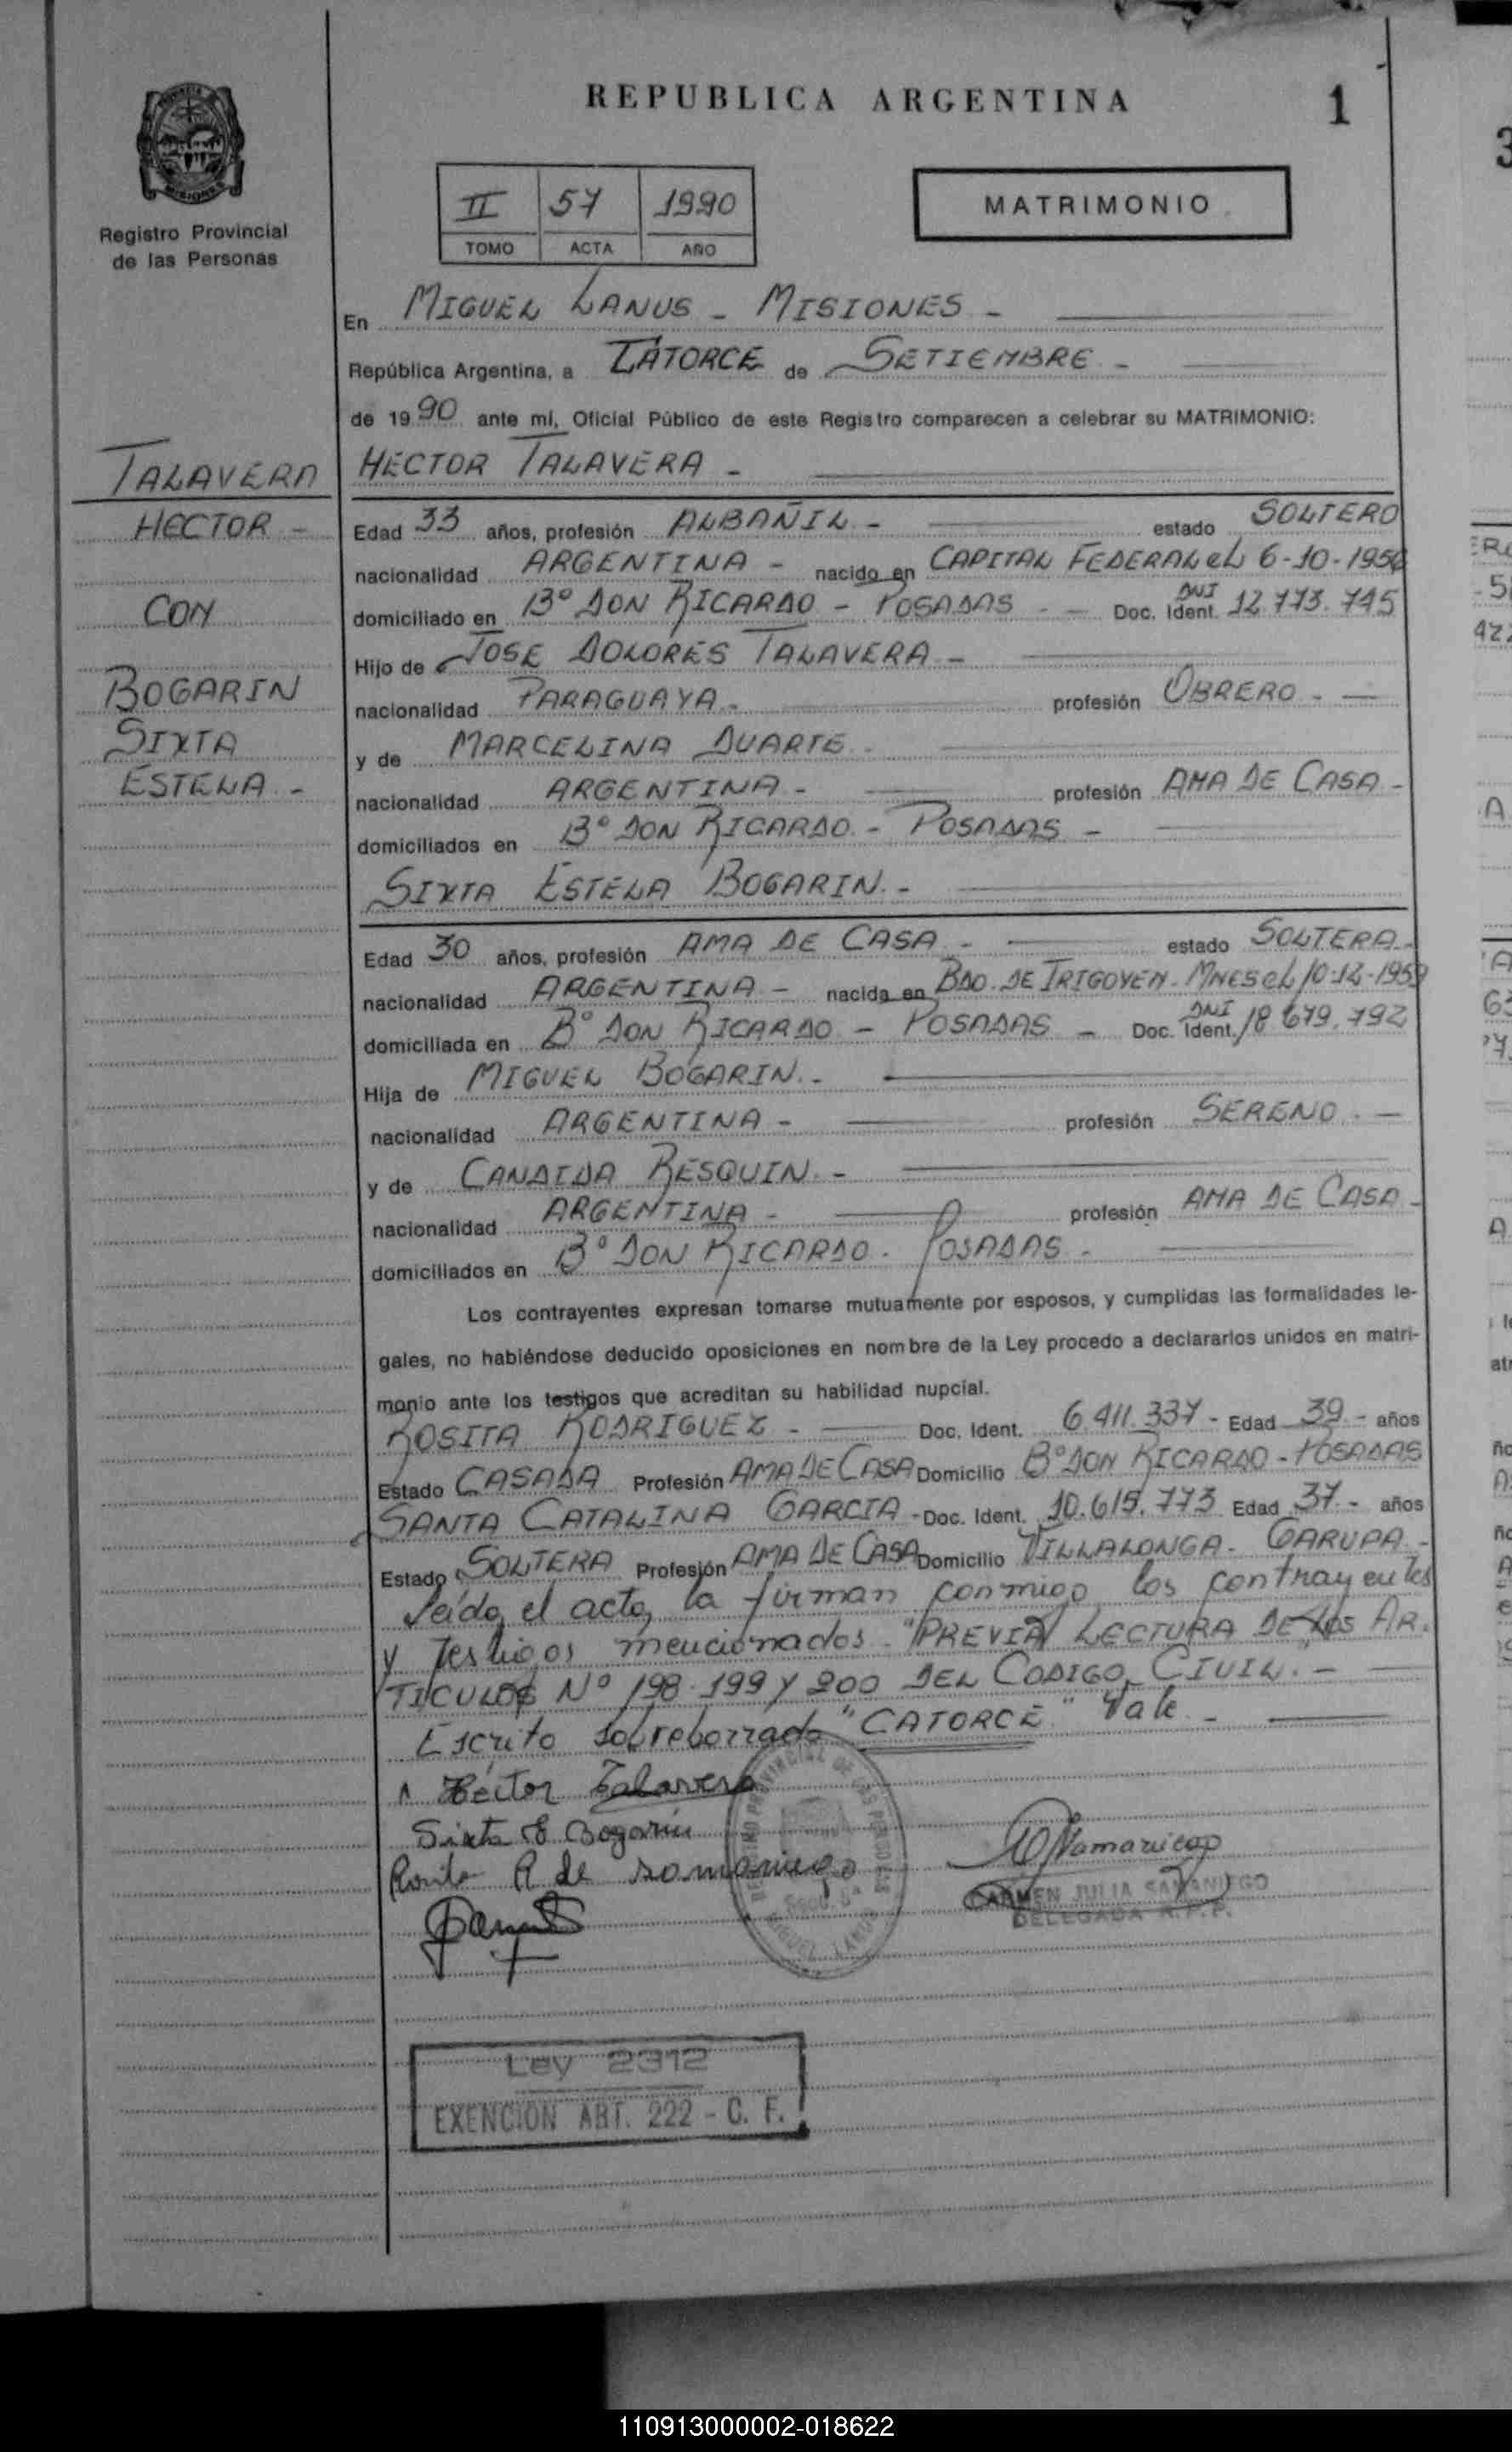 REPUBLICA ARGENTINA
1
Registro Provincial
de las Personas
II 57 1990
TOMO ACTA AÑO
MATRIMONIO
En MIGUEL LANUS - MISIONES -
República Argentina, a CATORCE de SETIEMBRE -
de 1990 ante mí, Oficial Público de este Registro comparecen a celebrar su MATRIMONIO:
TALAVERA
HECTOR -
CON
BOGARIN
SIXTA
ESTELA -
HECTOR TALAVERA -
Edad 33 años, profesión ALBAÑIL - estado SOLTERO
nacionalidad ARGENTINA - nacido en CAPITAL FEDERAL el 6-10-1956
domiciliado en Bº DON RICARDO - POSADAS - Doc. Ident. DNI 12.773.745
Hijo de JOSE DOLORES TALAVERA -
nacionalidad PARAGUAYA - profesión OBRERO -
y de MARCELINA DUARTE -
nacionalidad ARGENTINA - profesión AMA DE CASA -
domiciliados en Bº DON RICARDO - POSADAS -
SIXTA ESTELA BOGARIN -
Edad 30 años, profesión AMA DE CASA - estado SOLTERA
nacionalidad ARGENTINA - nacida en BDO. DE IRIGOYEN - MNES el 10-12-1959
domiciliada en Bº DON RICARDO - POSADAS - Doc. Ident. DNI 18.679.792
Hija de MIGUEL BOGARIN -
nacionalidad ARGENTINA - profesión SERENO -
y de CANDIDA RESQUIN -
nacionalidad ARGENTINA - profesión AMA DE CASA -
domiciliados en Bº DON RICARDO - POSADAS -
Los contrayentes expresan tomarse mutuamente por esposos, y cumplidas las formalidades le-
gales, no habiéndose deducido oposiciones en nombre de la Ley procedo a declararlos unidos en matri-
monio ante los testigos que acreditan su habilidad nupcial.
ROSITA RODRIGUEZ - Doc. Ident. 6.411.337 - Edad 39 - años
Estado CASADA Profesión AMA DE CASA Domicilio Bº DON RICARDO - POSADAS
SANTA CATALINA GARCIA - Doc. Ident. 10.615.773 Edad 37 - años
Estado SOLTERA Profesión AMA DE CASA Domicilio VILLALONGA - GARUPA -
Leída el acta, la firman conmigo los contrayentes
y testigos mencionados - "PREVIA LECTURA DE LOS AR-
TICULOS Nº 198-199 Y 200 DEL CODIGO CIVIL." -
Escrito sobreborrado "CATORCE" Vale -
Héctor Talavera
Sixta E Bogarin
Rosita R de Samaniego
CARMEN JULIA SAMANIEGO
DELEGADA R.P.P.
Ley 2312
EXENCION ART. 222 - C. F.
110913000002-018622